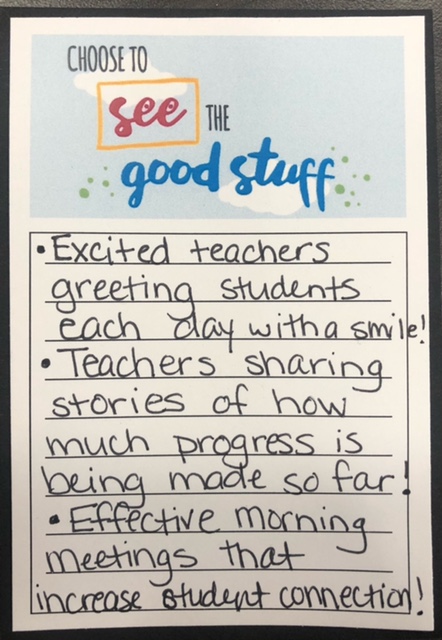 CHOOSE TO
see THE
good stuff
• Excited teachers
greeting students
each day with a smile!
• Teachers sharing
stories of how
much progress is
being made so far!
• Effective morning
meetings that
increase student connection!